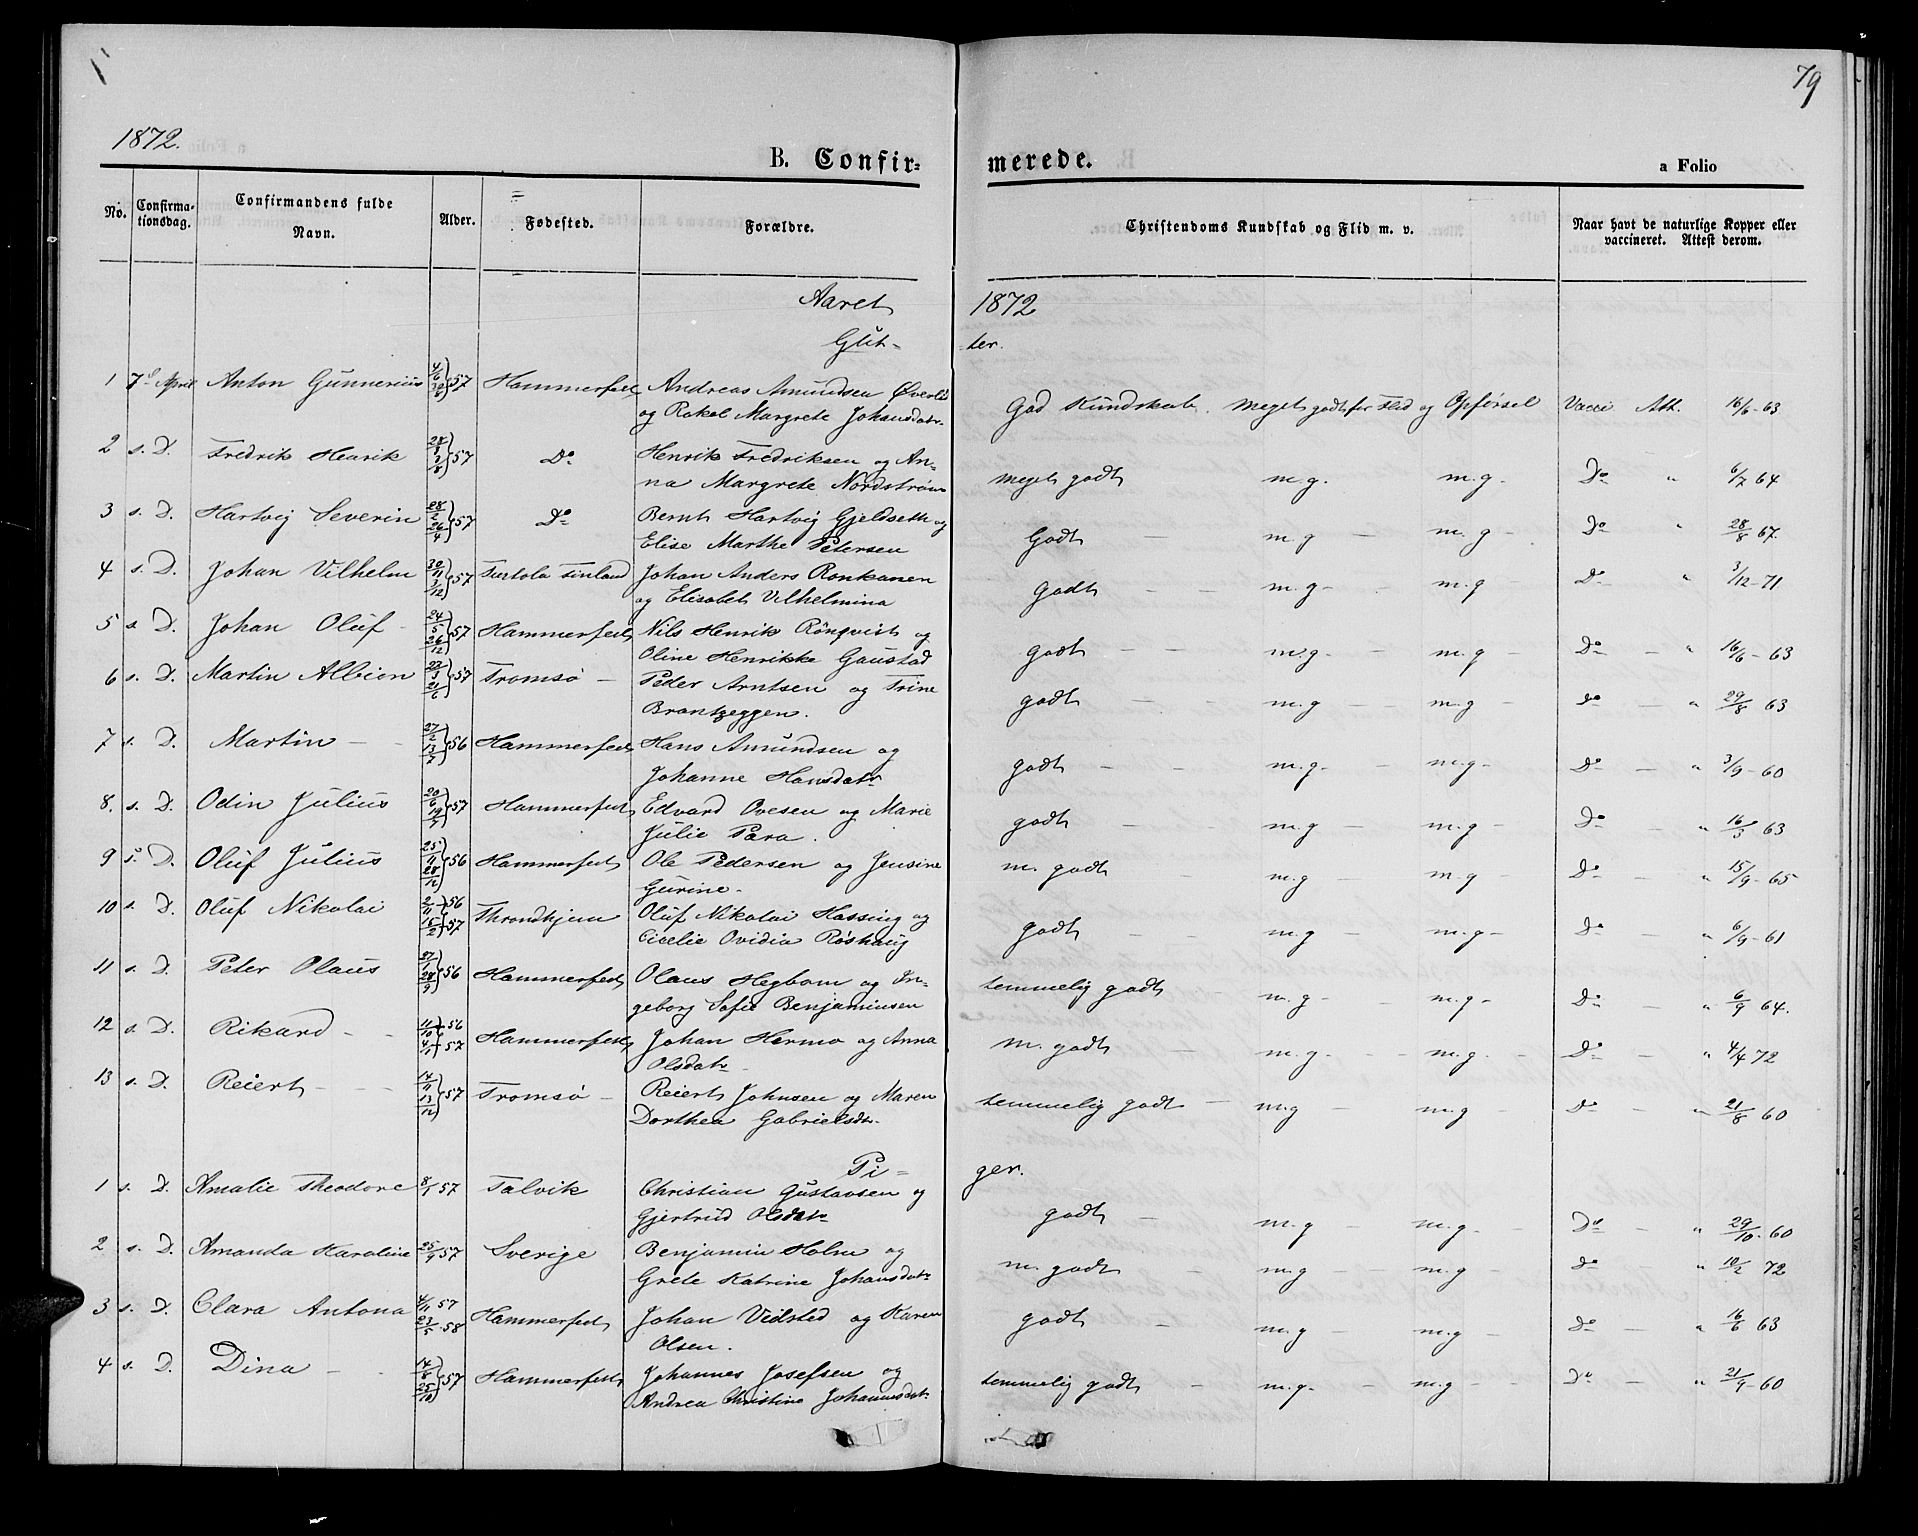 79
1872.
B. Confir=
merede.
a Folio
No.
Confirma-
tionsdag.
Confirmandens fulde
Navn.
Alder.
Fødested.
Forældre.
Christendoms Kundskab og Flid m. v.
Naar havt de naturlige Kopper eller
vaccineret. Attest derom.
Aaret 1872
Gut- ter.
1 7de April Anton Gunnerius 57 Hammerfest Andreas Amundsen
og Rakel Margrete Johansdatr God Kundskab. Meget godt for Flid og Opførsel Vacci Att. 16/6-63
2 s. D. Fredrik Henrik 28/1 3/8 57 Do Henrik Fredriksen og An-
na Margrete Nordstrøm meget godt m.g. m.g. Do " 6/7 64
3 s. D. Hartvig Severin 28/2 26/4 57 Do Bernt Hartvig Gjeldseth og
Elise Marthe Petersen Godt m.g m.g Do " 28/8 67.
4 s. D. Johan Vilhelm 30/11 3/12 57 Finland Johan Anders Ronkanen
og Elisabet Vilhelmina Godt m.g m.g Do " 3/12-71
5 s. D. Johan Oluf 24/5 26/12 57 Hammerfest Nils Henrik Rönqvist og
Oline Henrikke Gaustad godt m.g m.g Do " 16/6-63
6 s. D. Martin Albion 23/3 21/6 57 Tromsö Peder Arntsen og Trine
Brantzeggen. godt m.g m.g do " 29/8 63
7 s. D. Martin 27/2 13/7 56 Hammerfest Hans Amundsen og
Johanne Hansdatr godt m.g m.g Do " 3/9-60
8. s. D. Odin Julius 20/6 19/7 57 Hammerfest Edvard Ovesen og Marie
Julie Para. godt m.g m.g Do " 16/3 63
9 s. D. Oluf Julius 25/11 28/12 56 Hammerfest Ole Pedersen og Jensine
Gurine. m. godt m.g m.g Do " 15/9-65
10 s. D. Oluf Nikolai 2/11 56 15/2 57 Throndhjem Oluf Nikolai Hassing og
Cicelie Ovidia Røshaug godt m.g m.g Do " 6/9-61
11 s. D. Peter Olaus 27/1 28/9 56 Hammerfest Olaus Hegbom og In-
geborg Sofie Benjaminsen temmelig godt m.g m.g Do " 6/9 64.
12 s. D. Rikard 11/10 56 4/1 57 Hammerfest Johan Hermo og Anna
Olsdatr m. godt m.g m.g Do " 4/4 72
13 s. D. Reiert 14/11 13/12 57 Tromsö Reiert Johnsen og Maren
Dorthea Gabrielsdr. temmelig godt m.g m.g Do " 21/8 60
Pi- ger.
1 s. D. Amalie Theodore 8/1 57 Talvik Christian Gustavsen og
Gjertrud Olsdatr godt m.g m.g Do " 29/10-60
2 s. D. Amanda Karoline 25/9 57 Sverige Benjamin Holm og
Grete Katrine Johansdatr m. godt m.g m.g do " 10/2 72
3 s. D. Clara Antona 4/11 57 23/5 58 Hammerfest Johan Vidsted og Karen
Olsen. godt m.g m.g do " 16/6 63
4 s. D. Dina 14/8 25/10 57 Hammerfest Johannes Josefsen og
Andrea Christine Johannsdatr temmelig godt m.g m.g Do " 21/9-60